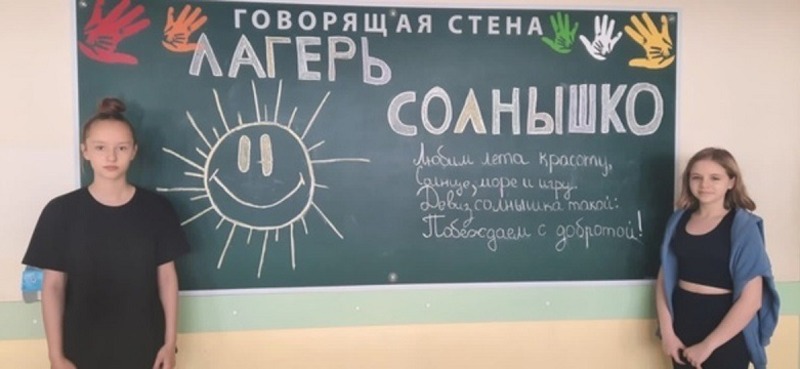 ГОВОРЯЩАЯ СТЕНА
ЛАГЕРЬ
СОЛНЫШКО
Любим лета красоту,
Солнце, море и игру.
Девиз солнышка такой:
Побеждаем с добротой!